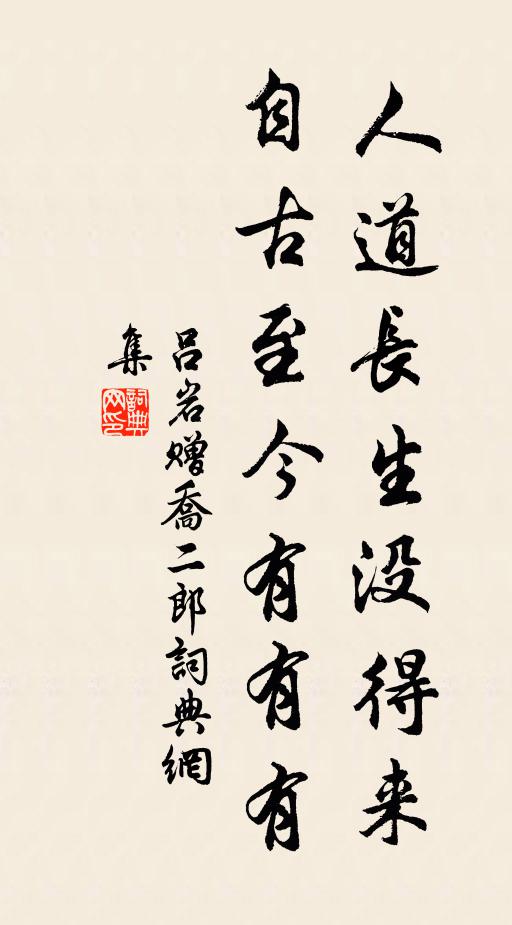 人道長生没得来
自古至今有有有
吕岩赠喬二郎詞典網
集
詞典网印